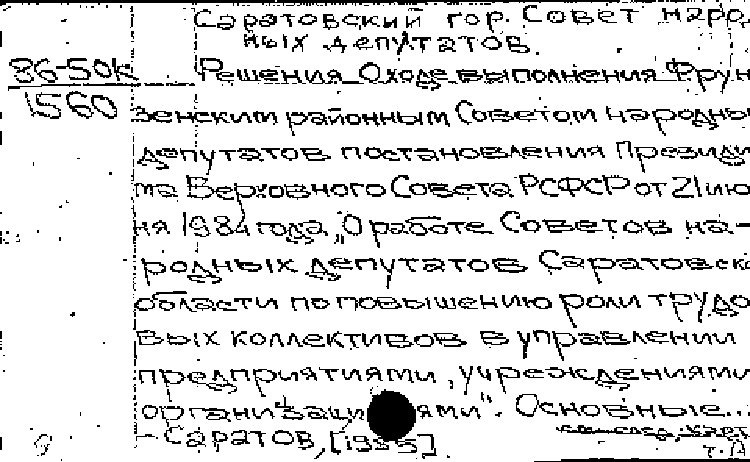 Саратовский гор. Совет наро
ных депутатов.
86-50к Решения О ходе выполнения Фрун
1560 зенским районным Советом народны
депутатов постановления Президи
ма Верховного Совета РСФСР от 21 ию
ня 1984 года „О работе Советов на-
родных депутатов Саратовско
области по повышению роли трудо
вых коллективов в управлении
предприятиями, учреждениями
организаци ями". Основные...
- Саратов, [1985]